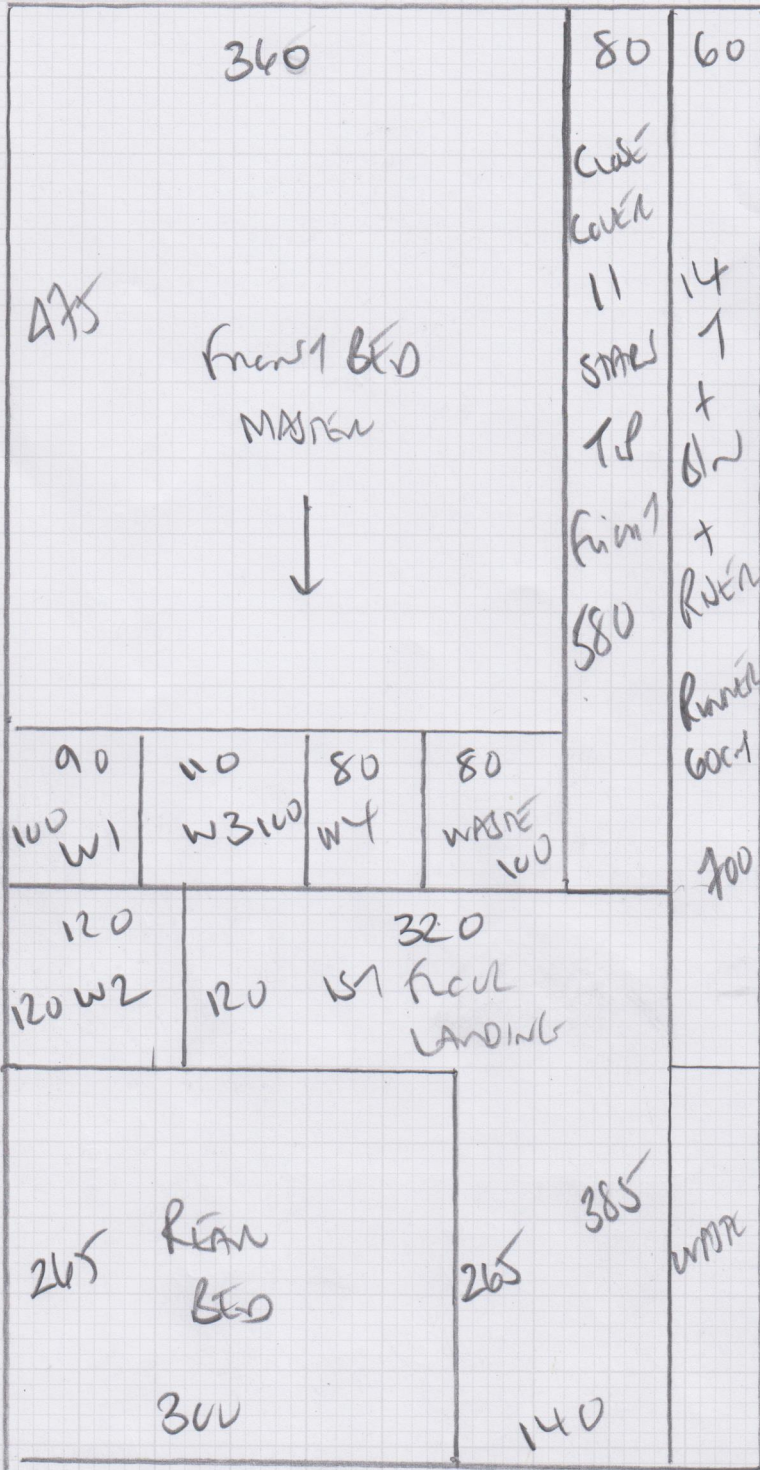 360
80
60
CLOSE
COVER
475
FRONT BED
MASTER
11
STAIRS
TO
FRONT
580
14
T
+
B/N
+
RISER
RUNNER
60CM
700
90
100 W1
110
W3 100
80
W4
80
WASTE
100
120
120 W2
320
120 1ST FLOOR
LANDING
265
REAR
BED
300
265
385
140
WASTE